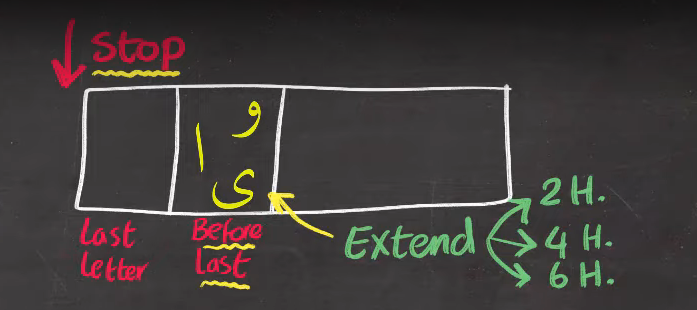 Stop
و
ا
ى
Last
Letter
Before
Last
Extend
2 H.
4 H.
6 H.